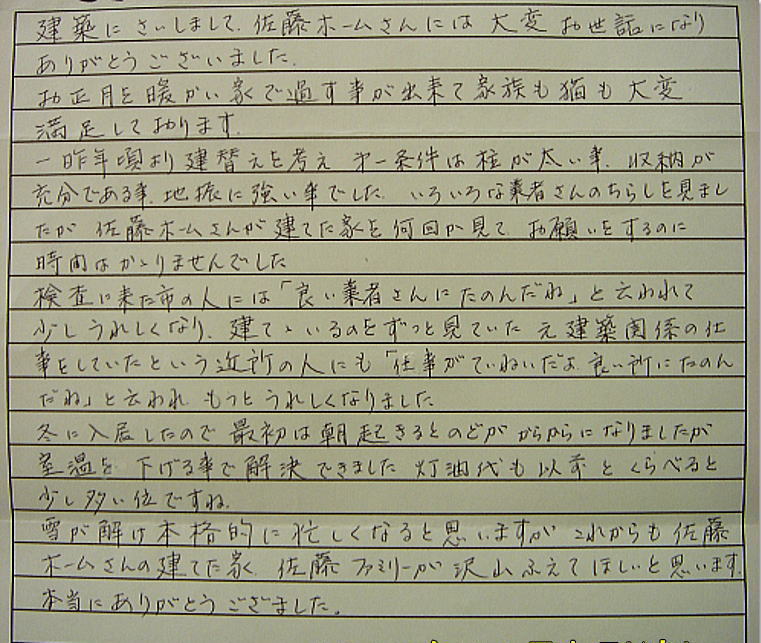 建築にさいしまして、佐藤ホームさんには大変お世話になり
ありがとうございました。
お正月を暖かい家で過す事が出来て家族も猫も大変
満足しております。
一昨年頃より建替えを考え第一条件は柱が太い事、収納が
充分である事、地振に強い事でした。いろいろな業者さんのちらしを見まし
たが佐藤ホームさんが建てた家を何回か見て、お願いをするのに
時間はかゝりませんでした
検査に来た市の人には「良い業者さんにたのんだね」と云われて
少しうれしくなり、建てゝいるのをずっと見ていた元建築関係の仕
事をしていたという近所の人にも「仕事がていねいだよ、良い所にたのん
だね」と云われもっとうれしくなりました
冬に入居したので最初は朝起きるとのどがからからになりましたが
室温を下げる事で解決できました 灯油代も以前とくらべると
少し多い位ですね。
雪が解け本格的に忙しくなると思いますがこれからも佐藤
ホームさんの建てた家、佐藤ファミリーが沢山ふえてほしいと思います。
本当にありがとうございました。